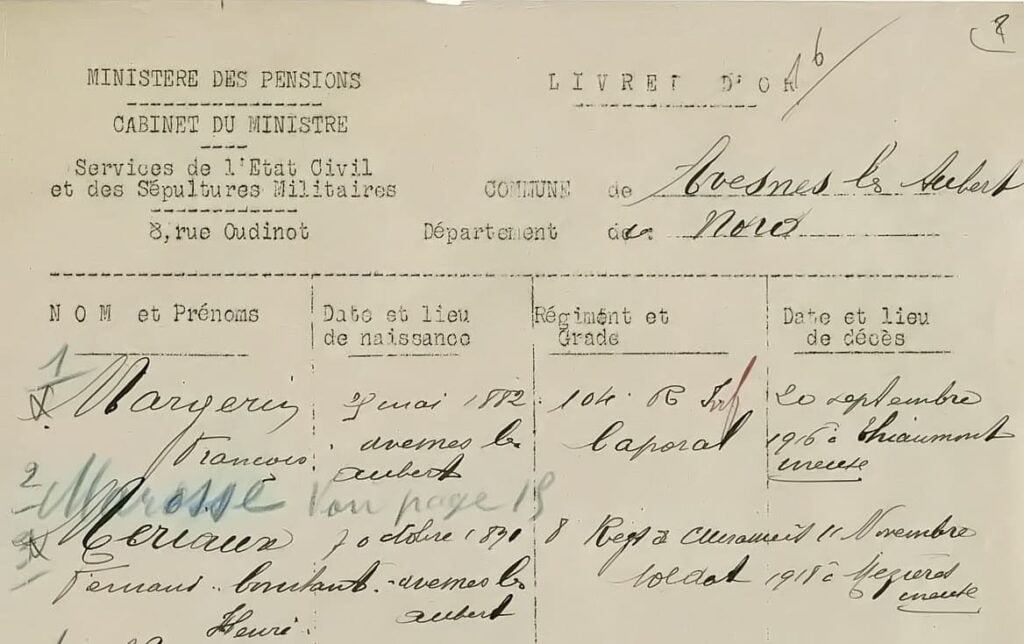 8
MINISTERE DES PENSIONS
LIVRET D'OR
16
CABINET DU MINISTRE
Services de l'Etat Civil
et des Sépultures Militaires
COMMUNE de Avesnes les Aubert
8,rue Oudinot
Département de: Nord
NOM et Prénoms
Date et lieu
de naissance
Régiment et
Grade
Date et lieu
de décès
1
Margerin
François
mai 1882
avesnes les
aubert
104 R Inf
Caporal
20 septembre
1916 à Thiaumont
meuse
2 Marossé Voir page 15
3
Meriaux
Fernand Constant
Henri
7 octobre 1890
avesnes les
aubert
8 Regt de Cuirassiers
soldat
11 Novembre
1918 à
meuse